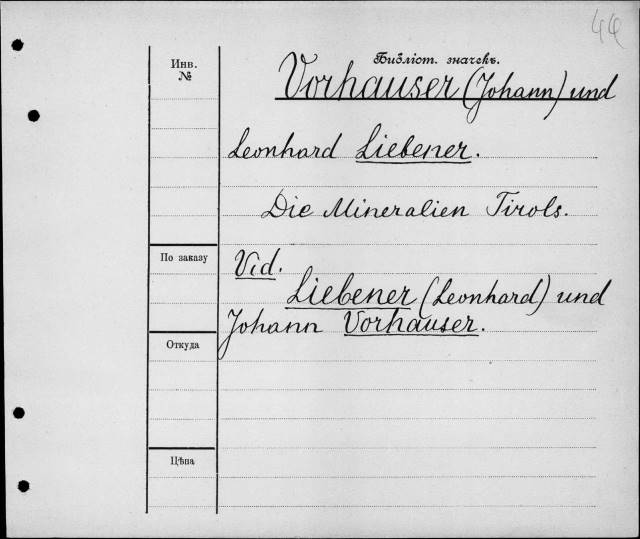 44
Инв.
№
Библіот. значекъ.
Vorhauser (Johann) und
Leonhard Liebener.
Die Mineralien Tirols.
По заказу
Vid.
Liebener (Leonhard) und
Johann Vorhauser.
Откуда
Цѣна